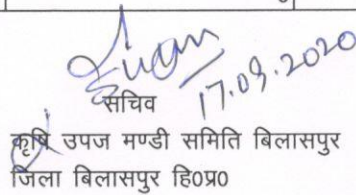 17.09.2020
सचिव
कृषि उपज मण्डी समिति बिलासपुर
जिला बिलासपुर हि०प्र०